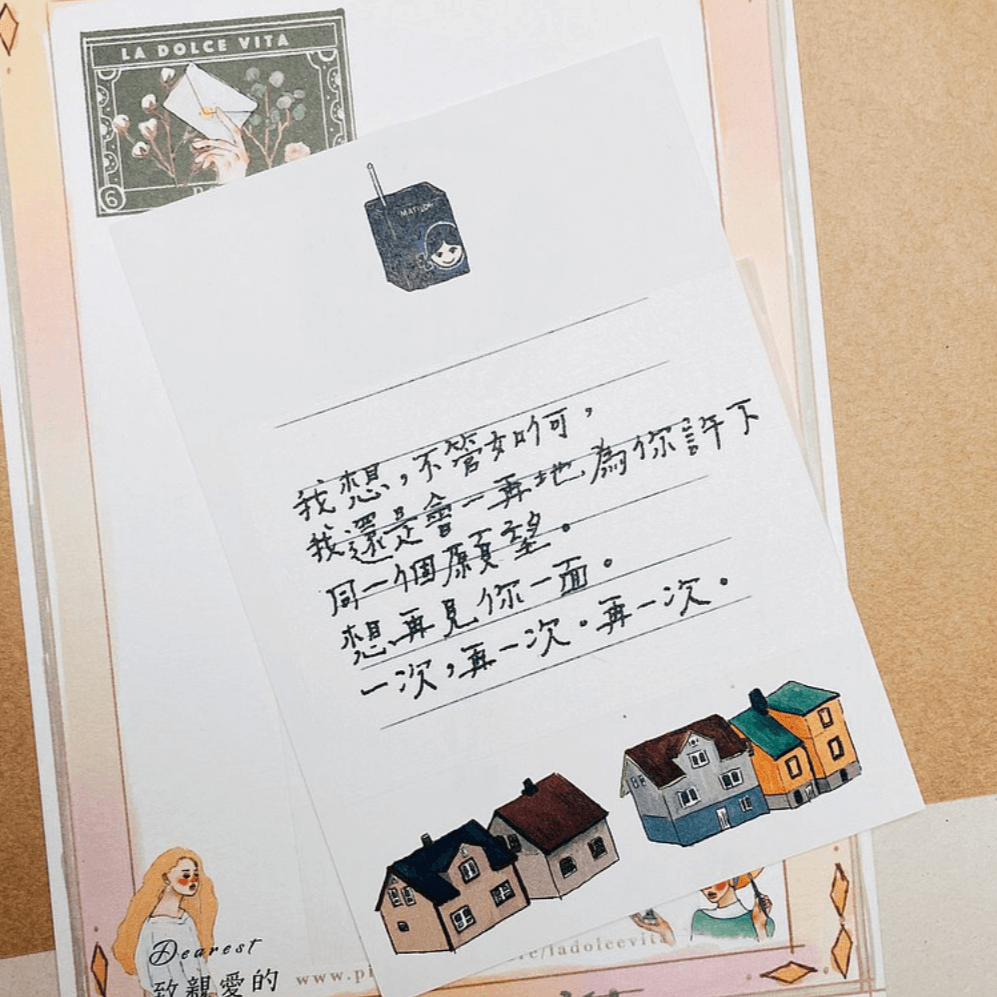 LA DOLCE VITA
6
MATILDA
我想,不管如何,
我還是會一再地為你許下
同一個願望。
想再見你一面。
一次,再一次。再一次。
Dearest
致親愛的
www.pi
e/ladolcevita